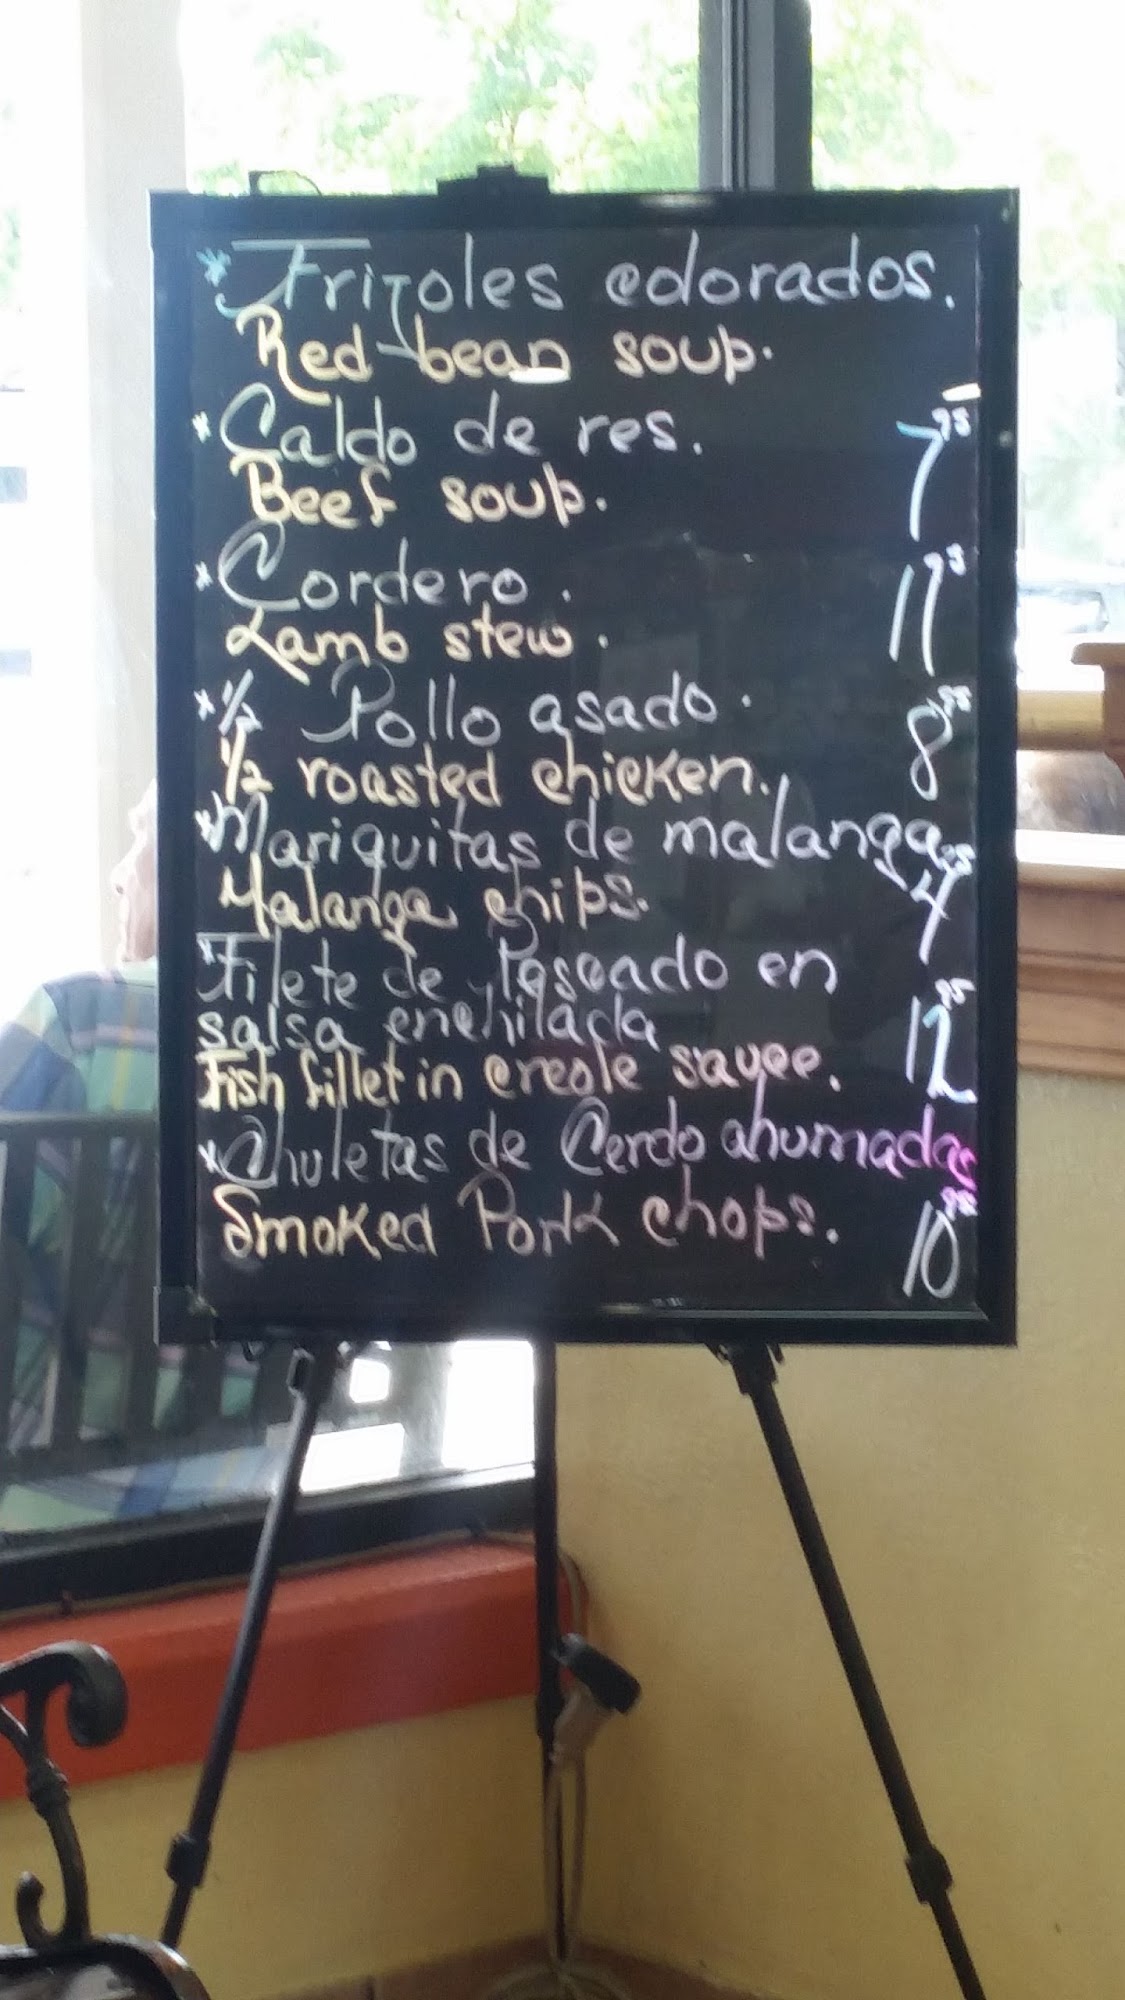 * Frijoles colorados.
Red bean soup.
* Caldo de res. 7.95
Beef soup.
* Cordero. 11.95
Lamb stew.
* 1/2 Pollo asado. 8.95
1/2 roasted chicken.
* Mariquitas de malanga
Malanga chips. 4
* Filete de Pescado en
salsa enchilada 12.95
Fish fillet in creole sauce.
* Chuletas de Cerdo ahumadas
Smoked Pork chops. 10.95